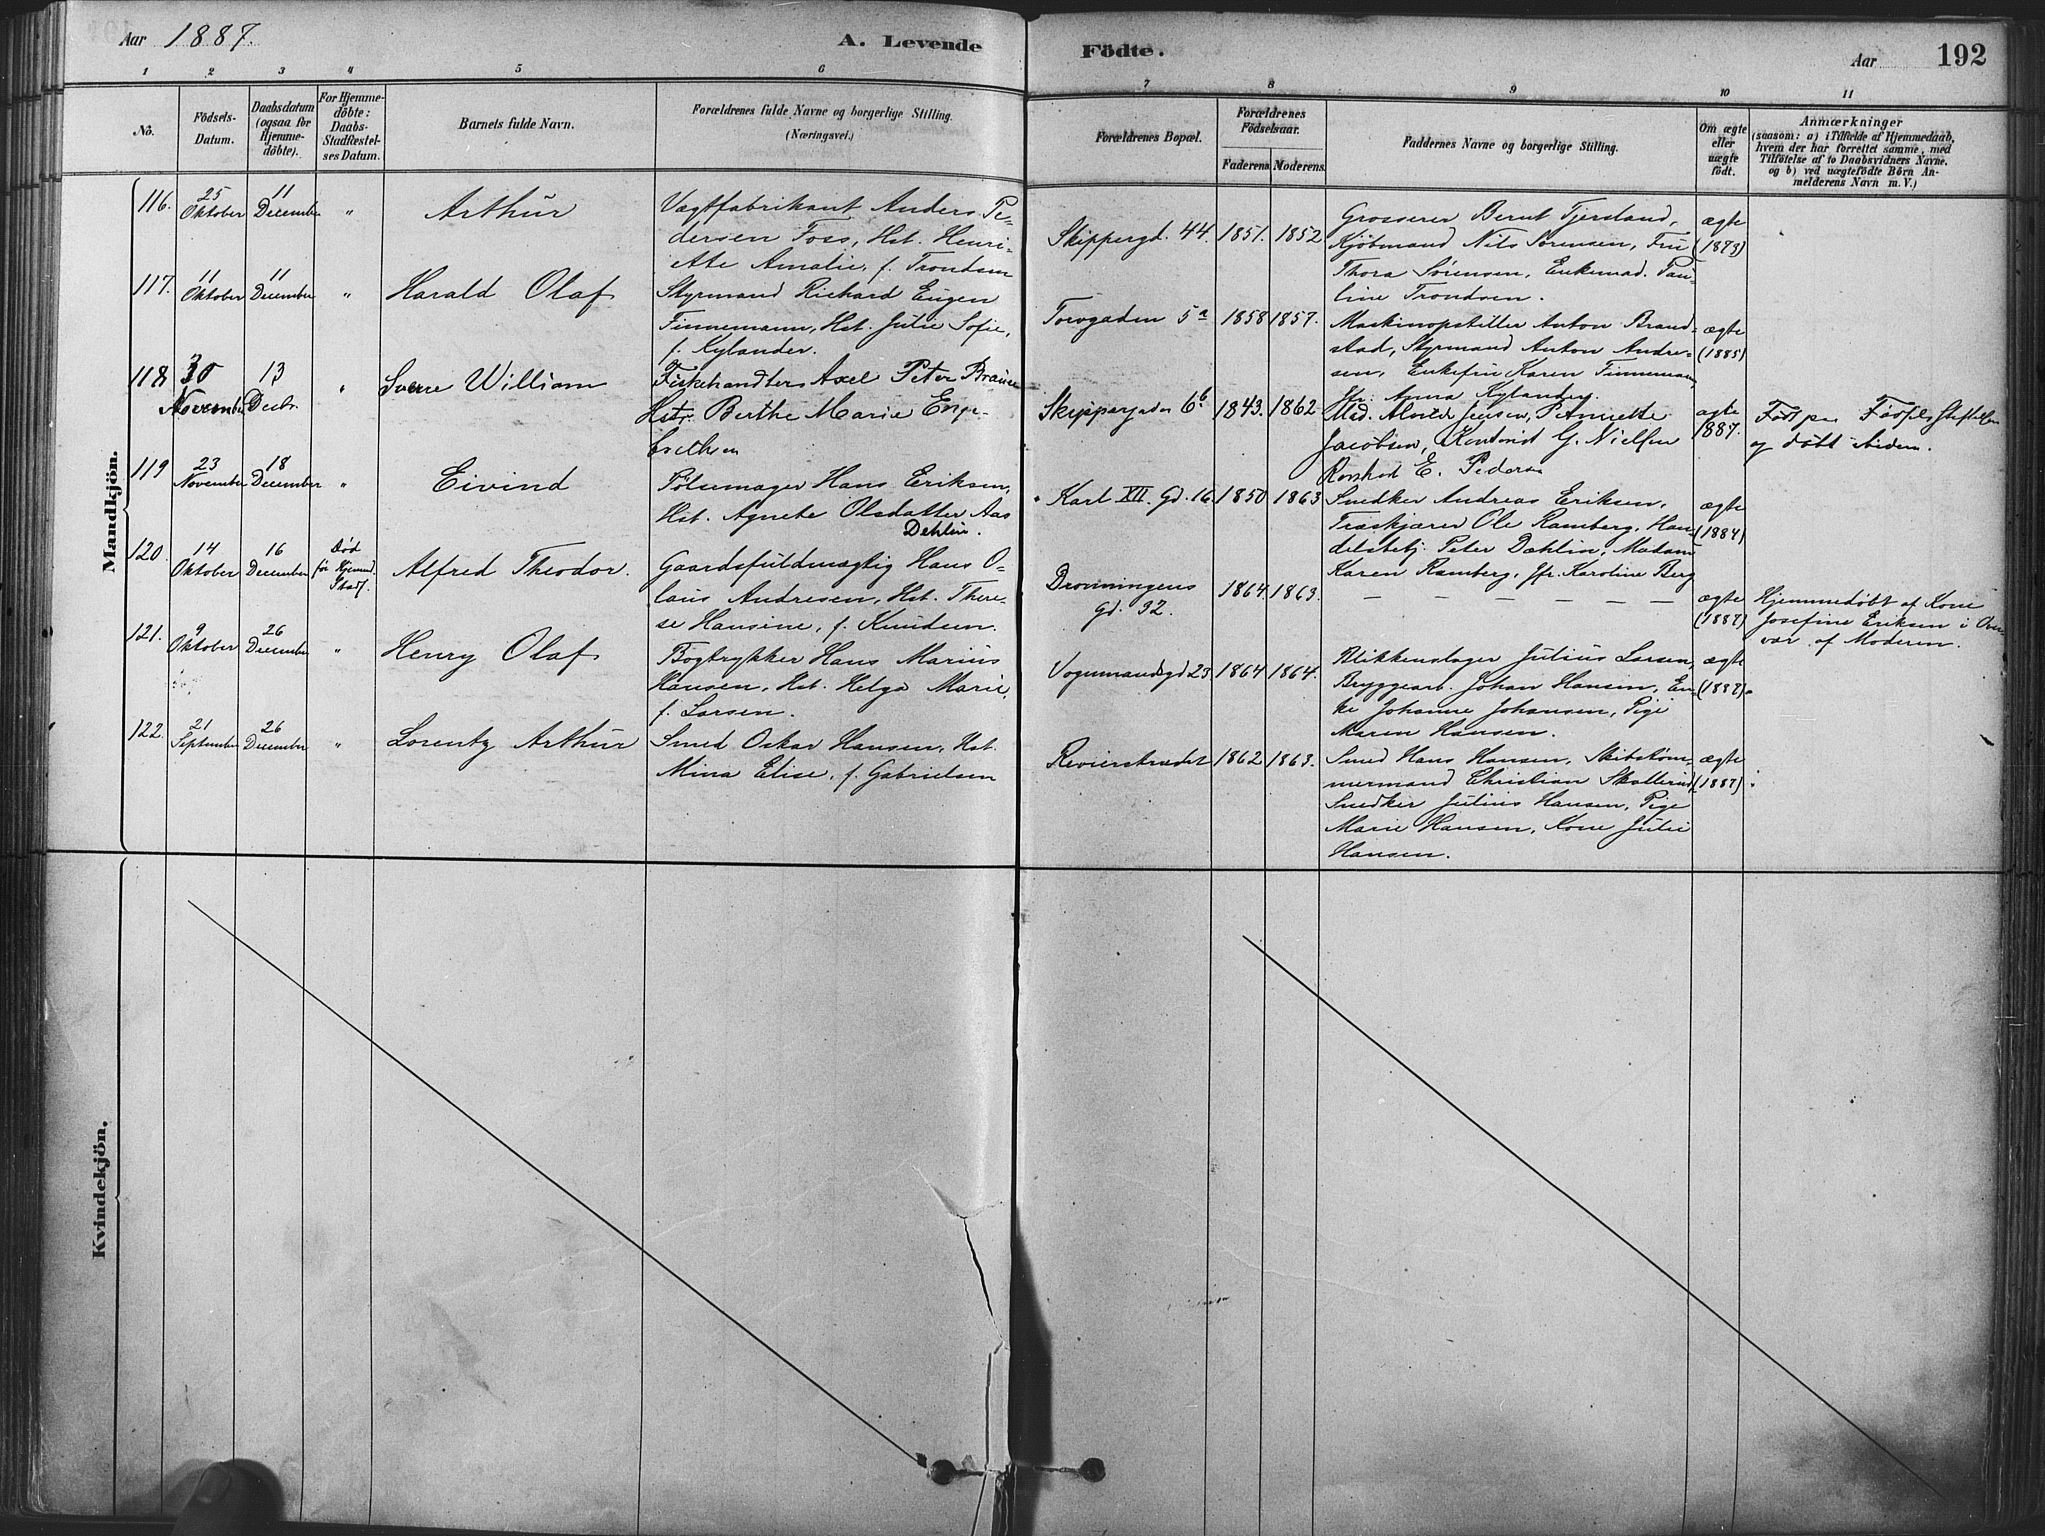 Aar 1887.
A. Levende
Födte.
Aar
192
1 2 3 4 5 6 7 8 9 10 11
No.
Födsels-
Datum.
Daabsdatum
(ogsaa for
Hjemme-
döbte).
For Hjemme-
döbte:
Daabs-
Stadfæstel-
ses Datum.
Barnets fulde Navn.
Forældrenes fulde Navne og borgerlige Stilling.
(Næringsvei.)
Forældrenes Bopæl.
Forældrenes
Födselsaar.
Faderens Moderens.
Faddernes Navne og borgerlige Stilling.
Om ægte
eller
uægte
födt.
Anmærkninger
(saasom: a) i Tilfælde af Hjemmedaab,
hvem der har forrettet samme, med
Tilföielse af to Daabsvidners Navne.
og b) ved uægtefödte Börn An-
melderens Navn m. V.)
Mandkjön.
116.
25
Oktober
11
December
"
Arthur
Vægtfabrikant Anders Pe-
dersen Foss, Hst. Henri-
ette Amalie, f. Trondsen
Skippergd. 44.
1851.
1852
Grosserer Bernt Tjersland,
Kjöbmand Nils Sørensen, Fru
Thora Sørensen, Enkemad. Pau-
line Trondsen.
ægte
(1873)
117.
11
Oktober
11
December
"
Harald Olaf
Styrmand Richard Eugen
Finnemann, Hst. Julie Sofie,
f. Kylander.
Torvgaden 5a
1858
1857.
Maskinopstiller Anton Brand-
stad, Styrmand Anton Andre-
sen, Enkefru Karen Finnemann
Jfr. Anna Kylander.
ægte
(1885)
118
30
November
13
Decbr.
"
Sverre William
Fiskehandler Axel Peter
Hstr. Berthe Marie Enge-
Skippergaden 6b
1843.
1862
Mad. Jensen, P. Annette
Jacobsen, G. Nielsen
E. Pedersen
ægte
1887.
Födt paa Födselsstiftelsen
og döbt sidem.
119
23
November
18
December
"
Eivind
Pölsemager Hans Eriksen,
Hst. Agnete Olsdatter Aas
Dehlin.
Karl XII. Gd. 16
1850
1863
Snedker Andreas Eriksen,
Træskjærer Ole Ramberg, Han-
delsbetj. Peter Dæhlin, Madam
Karen Ramberg, Jfr. Karoline Berg
ægte
(1884)
120.
14
Oktober
16
December
Död
för Hjemmed.
Stadf.
Alfred Theodor.
Gaardsfuldmægtig Hans O-
laus Andresen, Hst. There-
se Hansine, f. Knudsen.
Dronningens
Gd. 32.
1864
1863.
— — — — — —
ægte
(1887)
Hjemmedöbt af Kone
Josefine Eriksen i Over-
vær af Moderen.
121.
9
Oktober
26
December
"
Henry Olaf
Bogtrykker Hans Marius
Hansen, Hst. Helga Marie,
f. Larsen.
Vognmandsgd 23
1864
1864.
Blikkenslager Julius Larsen,
Bryggearb. Johan Hansen, En-
ke Johanne Johansen, Pige
Maren Hansen.
ægte
(1887)
122.
21
September
26
December
"
Lorentz Arthur
Smed Oskar Hansen, Hst.
Mina Elise, f. Gabrielsen
Revierstrædet
1862
1863.
Smed Hans Hansen, Skibstöm-
mermand Christian Skollerud,
Snedker Julius Hansen, Pige
Marie Hansen, Kone Julie
Hansen.
ægte
(1887)
Kvindekjön.